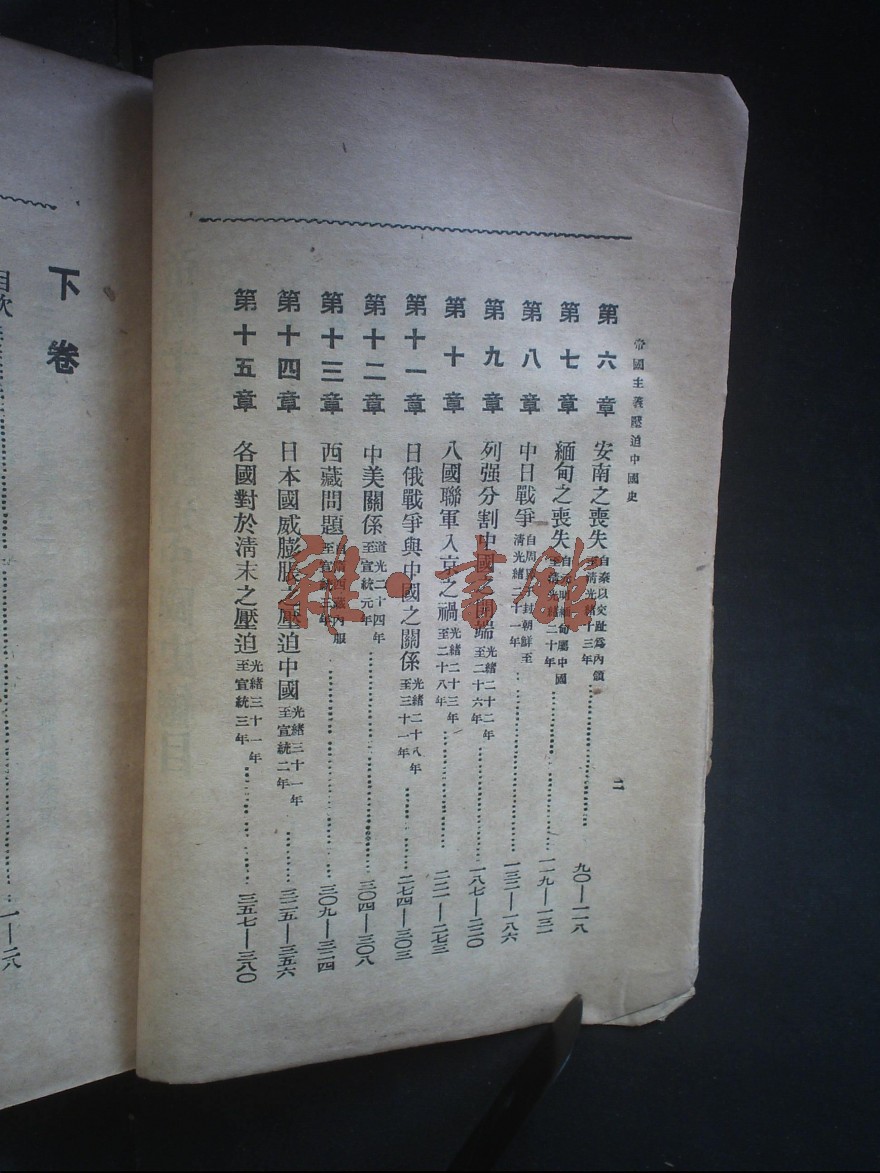 帝國主義壓迫中國史
二
第六章 安南之喪失 自秦以交趾爲內領至清光緒十三年 九〇—一一八
第七章 緬甸之喪失 自元明緬甸屬中國至清光緒二十年 一一九—一三一
第八章 中日戰爭 自周 封朝鮮至清光緒二十一年 一三二—一八六
第九章 列强分割中國之 端 光緒二十二年至二十六年 一八七—二二〇
第十章 八國聯軍入京之禍 光緒二十三年至二十八年 二二一—二七三
第十一章 日俄戰爭與中國之關係 光緒二十八年至三十一年 二七四—三〇三
第十二章 中美關係 道光二十四年至宣統元年 三〇四—三〇八
第十三章 西藏問題 內服至宣統三年 三〇九—三二四
第十四章 日本國威膨脹之壓迫中國 光緒三十一年至宣統二年 三二五—三五六
第十五章 各國對於清末之壓迫 光緒三十一年至宣統三年 三五七—三八〇
下卷
目次 一—二八
雜·書館